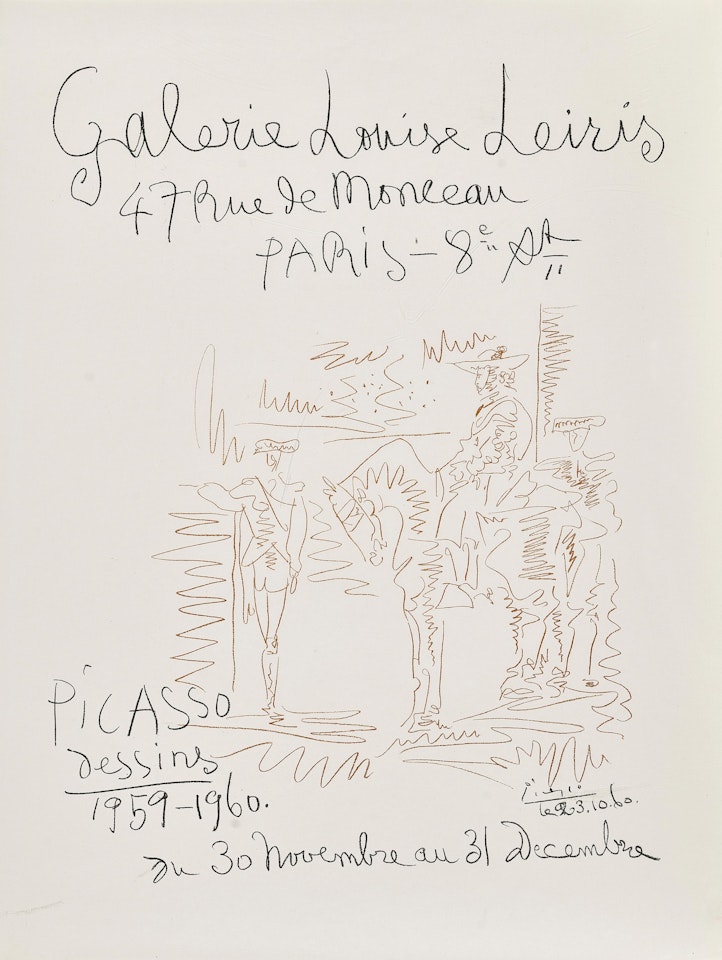 Galerie Louise Leiris
47 Rue de Monceau
PARIS - 8e AR
PiCASSO
dessins
1959-1960.
Picasso
le 23.10.60.
du 30 Novembre au 31 Decembre